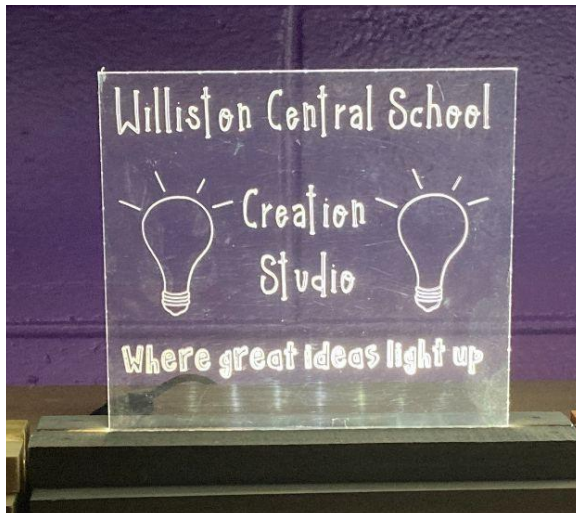 Williston Central School
Creation
Studio
Where great ideas light up